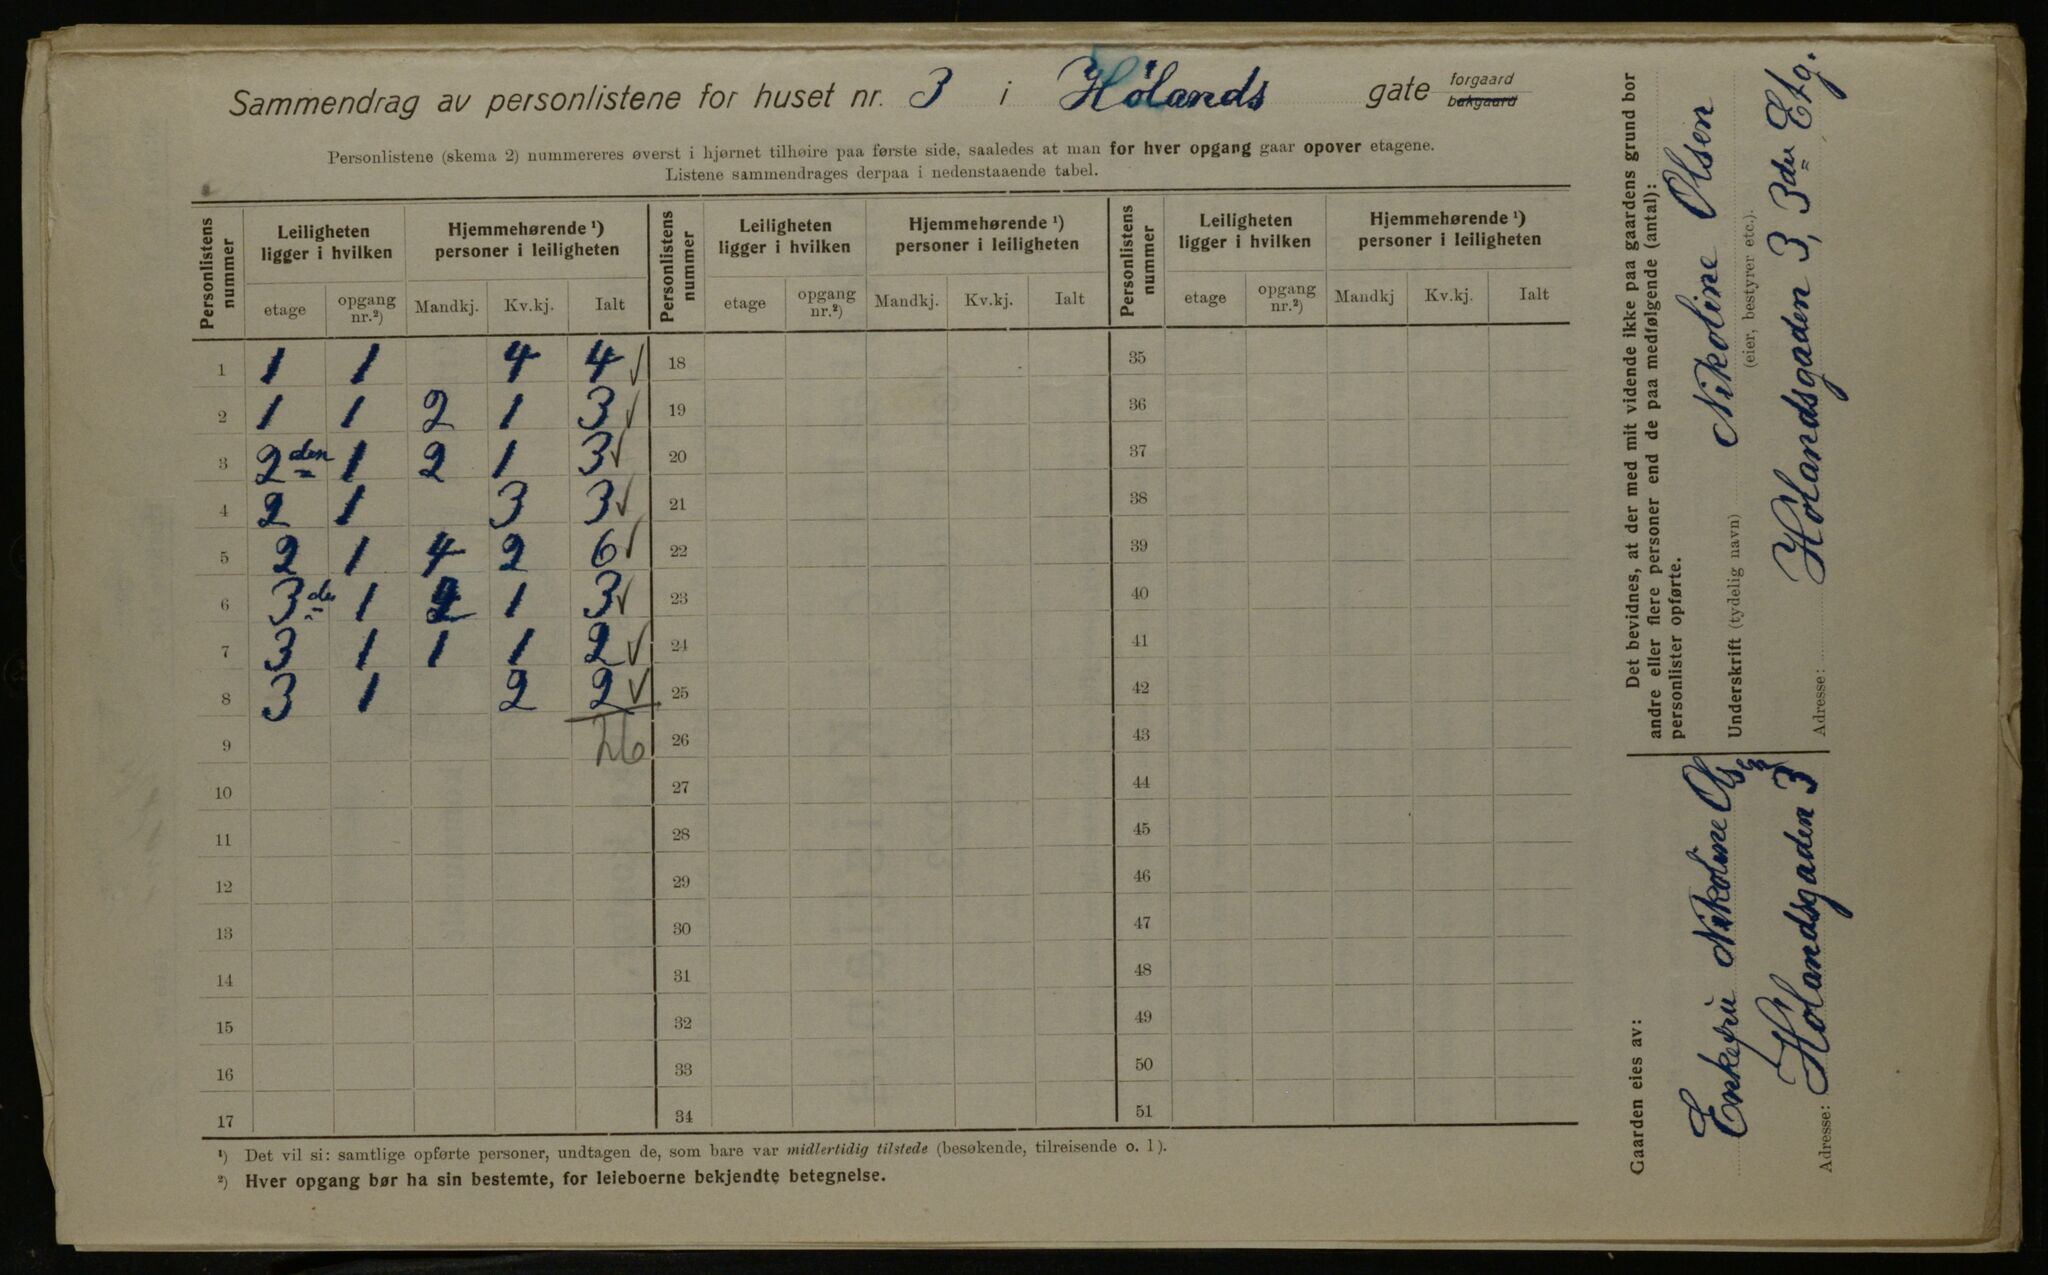 Sammendrag av personlistene for huset nr. 3 i Hølands gate forgaard
bakgaard
Personlistene (skema 2) nummereres øverst i hjørnet tilhøire paa første side, saaledes at man for hver opgang gaar opover etagene.
Listene sammendrages derpaa i nedenstaaende tabel.
Personlistens nummer | Leiligheten ligger i hvilken | Hjemmehørende ¹) personer i leiligheten | Personlistens nummer | Leiligheten ligger i hvilken | Hjemmehørende ¹) personer i leiligheten | Personlistens nummer | Leiligheten ligger i hvilken | Hjemmehørende ¹) personer i leiligheten
etage | opgang nr.²) | Mandkj. | Kv.kj. | Ialt | etage | opgang nr.²) | Mandkj. | Kv.kj. | Ialt | etage | opgang nr.²) | Mandkj | Kv.kj. | Ialt
1 | 1 | 1 | | 4 | 4 ✓ | 18 | 35
2 | 1 | 1 | 2 | 1 | 3 ✓ | 19 | 36
3 | 2den | 1 | 2 | 1 | 3 ✓ | 20 | 37
4 | 2 | 1 | | 3 | 3 ✓ | 21 | 38
5 | 2 | 1 | 4 | 2 | 6 ✓ | 22 | 39
6 | 3die | 1 | 2 | 1 | 3 ✓ | 23 | 40
7 | 3 | 1 | 1 | 1 | 2 ✓ | 24 | 41
8 | 3 | 1 | | 2 | 2 ✓ | 25 | 42
9 | | | | | 26 | 26 | 43
10 | 27 | 44
11 | 28 | 45
12 | 29 | 46
13 | 30 | 47
14 | 31 | 48
15 | 32 | 49
16 | 33 | 50
17 | 34 | 51
¹) Det vil si: samtlige opførte personer, undtagen de, som bare var midlertidig tilstede (besøkende, tilreisende o. l).
²) Hver opgang bør ha sin bestemte, for leieboerne bekjendte betegnelse.
Det bevidnes, at der med mit vidende ikke paa gaardens grund bor
andre eller flere personer end de paa medfølgende (antal):
personlister opførte.
Underskrift (tydelig navn) Nikoline Olsen
(eier, bestyrer etc.).
Adresse: Hølandsgaden 3, 3die Etg.
Gaarden eies av:
Enkefru Nikoline Olsen
Adresse: Hølandsgaden 3